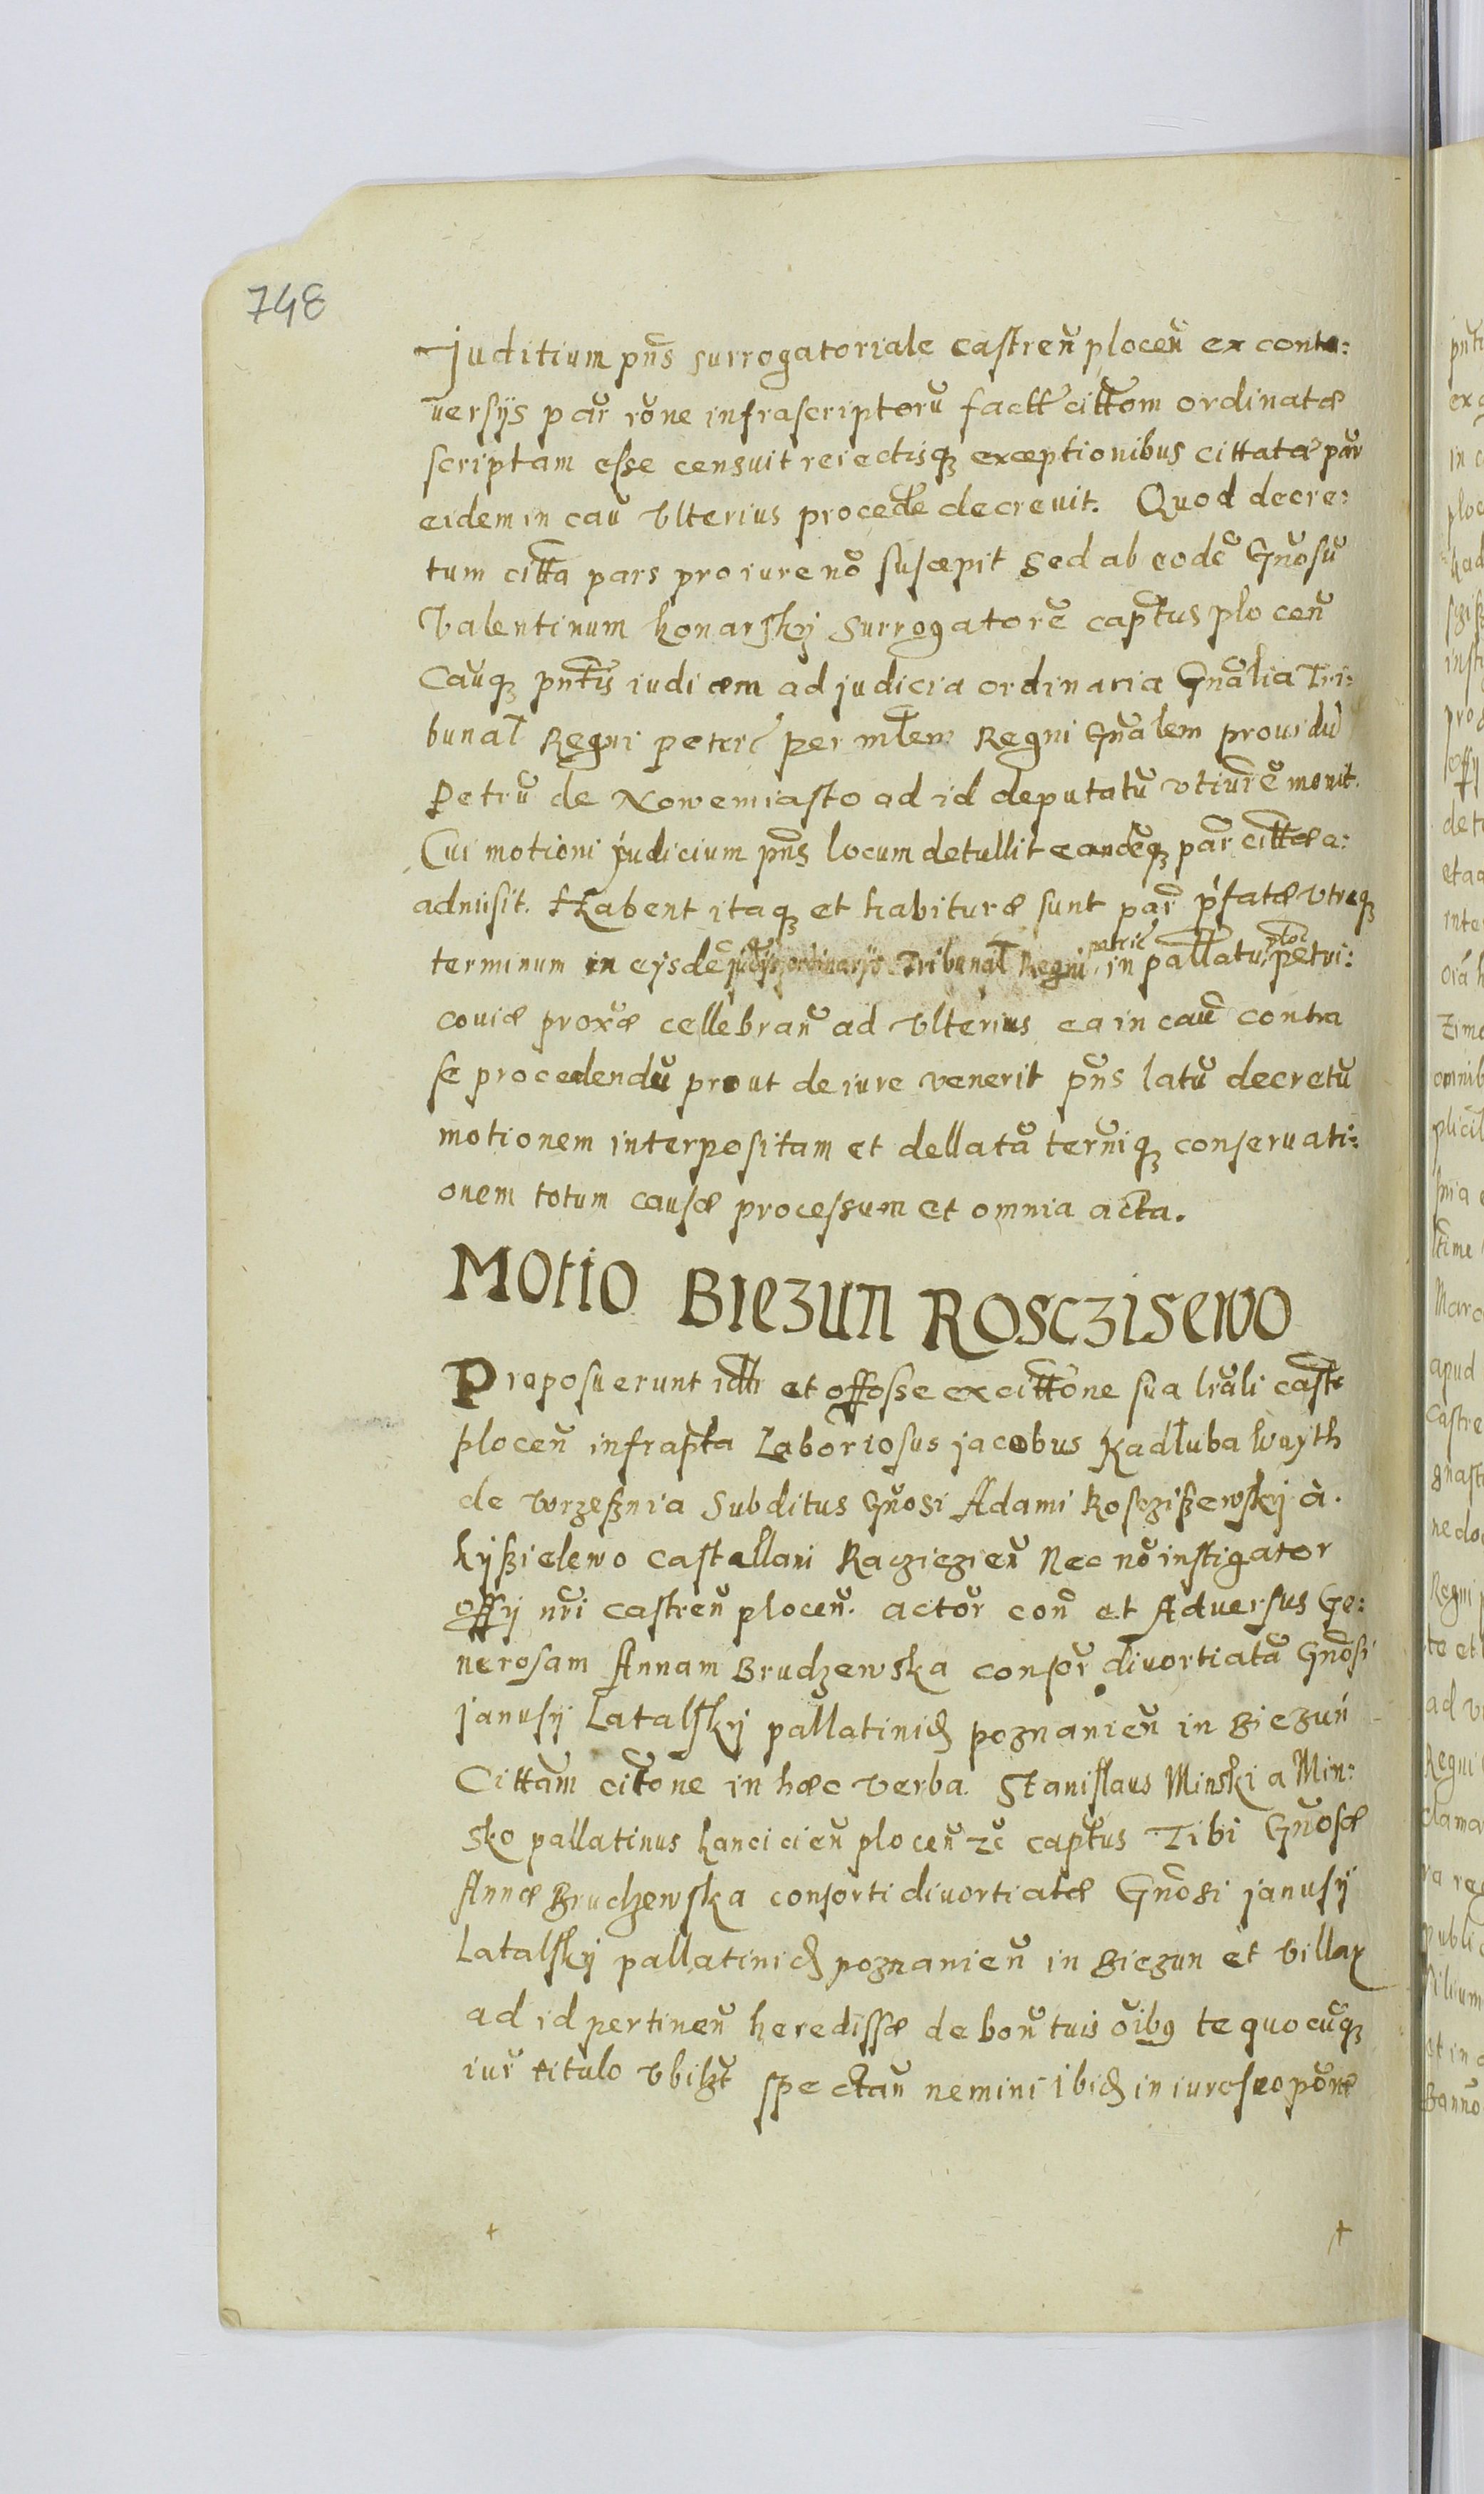 748
Juditium pñs surrogatoriale castreñ ploceñ ex contr:
uersÿs par rõne infrascriptorũ factt cittom ordinatæ
scriptam esse censuit reiectisq₃ exceptionibus cittatæ par
eidem in cau Vlterius procede decreuit. Quod decre:
tum citta pars pro iure nõ suscepit Sed ab eodẽ Gñosũ
Valentinum konarskÿ Surrogatorẽ captus ploceñ
Cauq₃ pntis iudicem ad judicia ordinaria Gnalia Tri:
bunal Regni petric per mlem Regni Gñalem prouidũ
Petrũ de Nowemiasto ad id deputatũ vti iure mouit.
Cui motioni judicium pñs locum detullit eandeq₃ par cittæ a:
admisit. Habent itaq₃ et habituræ sunt par pfatæ vtraq₃
terminum in eÿsdẽ judicÿs ordinarÿs Tribunal Regni petric in pallatu ploc petri:
couiæ proxæ cellebrañ ad Vlterius ea in cau contra
se procedendũ prout de iure venerit pñs latũ decretũ
motionem interpositam et dellatã termiq₃ conseruati:
onem totum causæ processum et omnia acta.
MOTIO BIEZUN ROSCZISEWO
Proposuerunt idtt et offosse ex cittone sua lrali castr
ploceñ infrapta Laboriosus jacobus Kadluba woyth
de Vrzeßnia Subditus Gñosi Adami Rosczißewskÿ à
kÿßielewo castellani Racziezieñ Nec nõ instigator
offÿ nri castreñ ploceñ. actor con et Adversus Ge:
nerosam Annam Brudzewska consor divortiatã Gñosi
janusÿ Latalskÿ pallatinid poznanieñ in Biezuń
Cittam citone in hæc verba. Stanislaus Minski a Min:
sko pallatinus Lancicieñ ploceñ zc captus Tibi Gñosæ
Annæ Brudzewska consorti divortiatæ Gñosi janusÿ
Latalskÿ pallatinid poznanieñ in Biezun et villar
ad id pertineñ heredissæ de boñ tuis õibus te quocũq₃
iur titulo vbilzt spectañ nemini ibid in iure suo põne